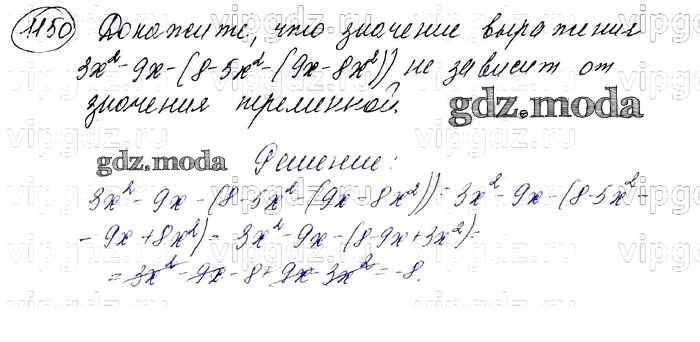 1150 Докажите, что значение выражения
3x² - 9x - (8 - 5x² - (9x - 8x²)) не зависит от
значения переменной.
gdz.moda
gdz.moda Решение:
3x² - 9x - (8 - 5x² - (9x - 8x²)) = 3x² - 9x - (8 - 5x² -
- 9x + 8x²) = 3x² - 9x - (8 - 9x + 3x²) =
= 3x² - 9x - 8 + 9x - 3x² = -8.